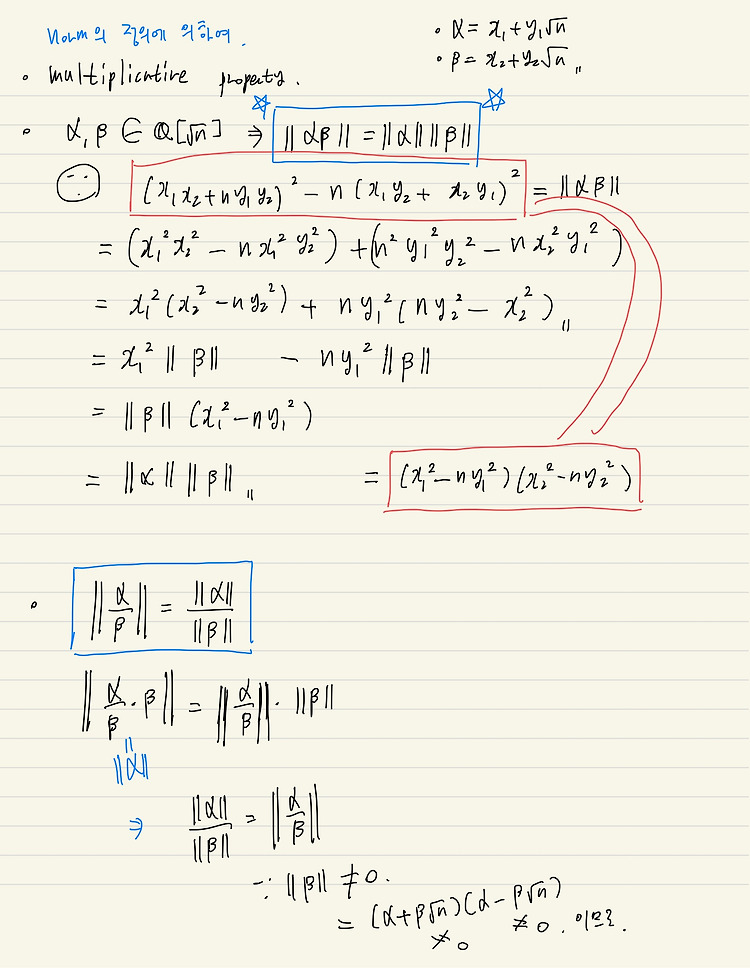 Norm의 정의에 의하여.
• α = x₁+y₁√n
• β = x₂+y₂√n 〃
• multiplicative property.
• α, β ∈ ℚ[√n] ⇒ ‖αβ‖ = ‖α‖‖β‖
(x₁x₂+ny₁y₂)² − n(x₁y₂+ x₂y₁)² = ‖αβ‖
= (x₁²x₂² − nx₁²y₂²) + (n²y₁²y₂² − nx₂²y₁²)
= x₁²(x₂²−ny₂²) + ny₁²(ny₂² − x₂²) 〃
= x₁²‖β‖ − ny₁²‖β‖
= ‖β‖(x₁²−ny₁²)
= ‖α‖‖β‖ 〃 = (x₁²−ny₁²)(x₂²−ny₂²)
• ‖α/β‖ = ‖α‖/‖β‖
‖α/β · β‖ = ‖α/β‖ · ‖β‖
‖
‖α‖
⇒ ‖α‖/‖β‖ = ‖α/β‖
∵ ‖β‖ ≠ 0.
= (α+β√n)(α−β√n)
≠0 ≠0. 이므로.